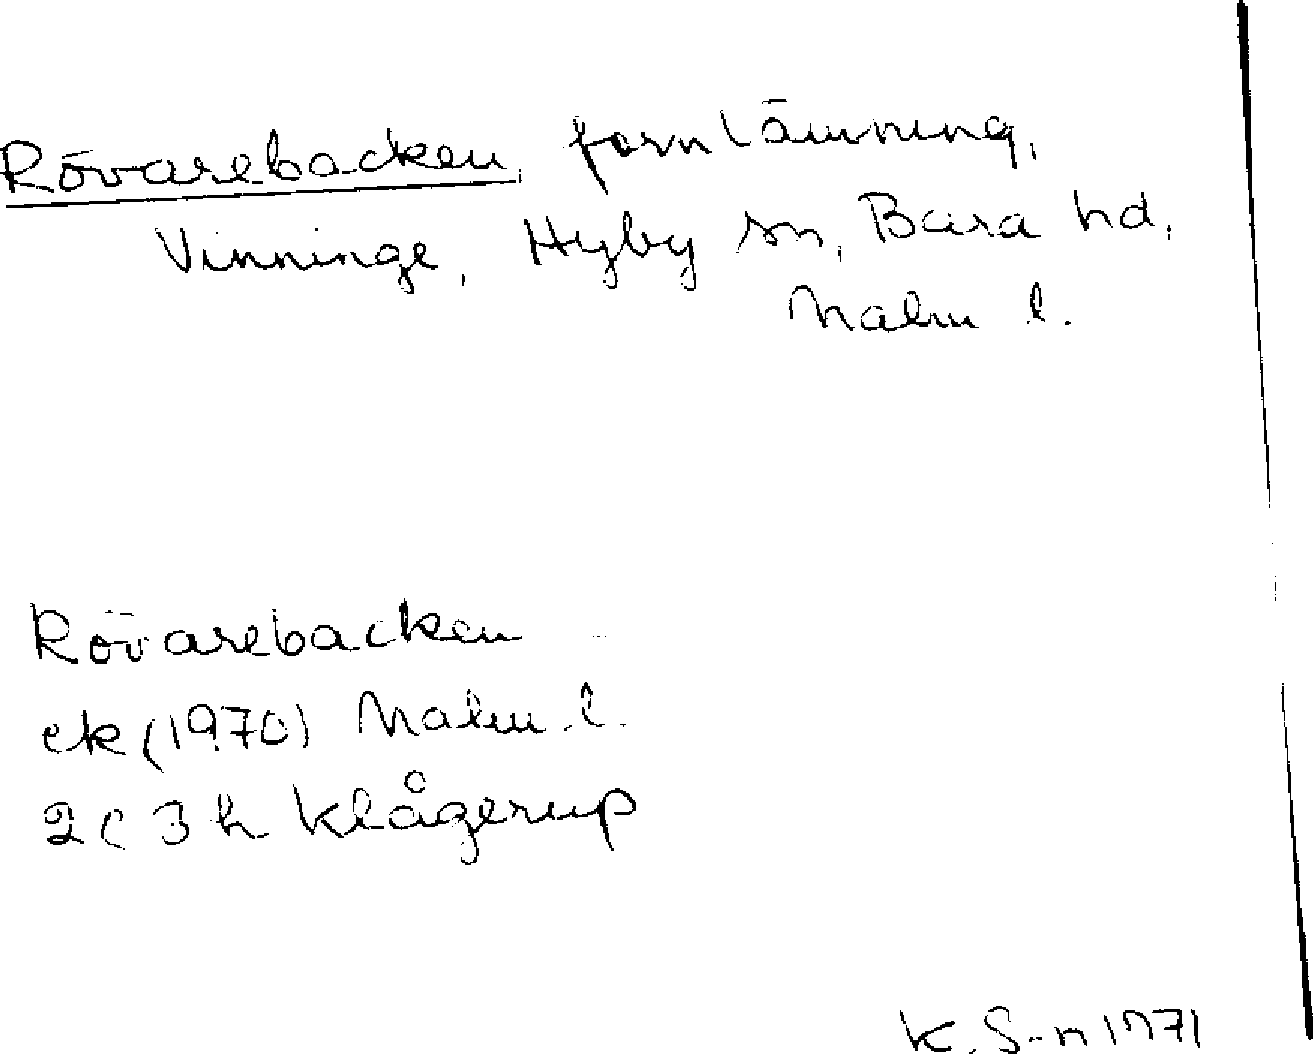 Rövarebacken, fornlämning,
Vinninge, Hyby sn, Bara hd,
Malm l.
Rövarebacken
ek (1970) Malm. l.
2C 3h Klågerup
K. S-n 1971